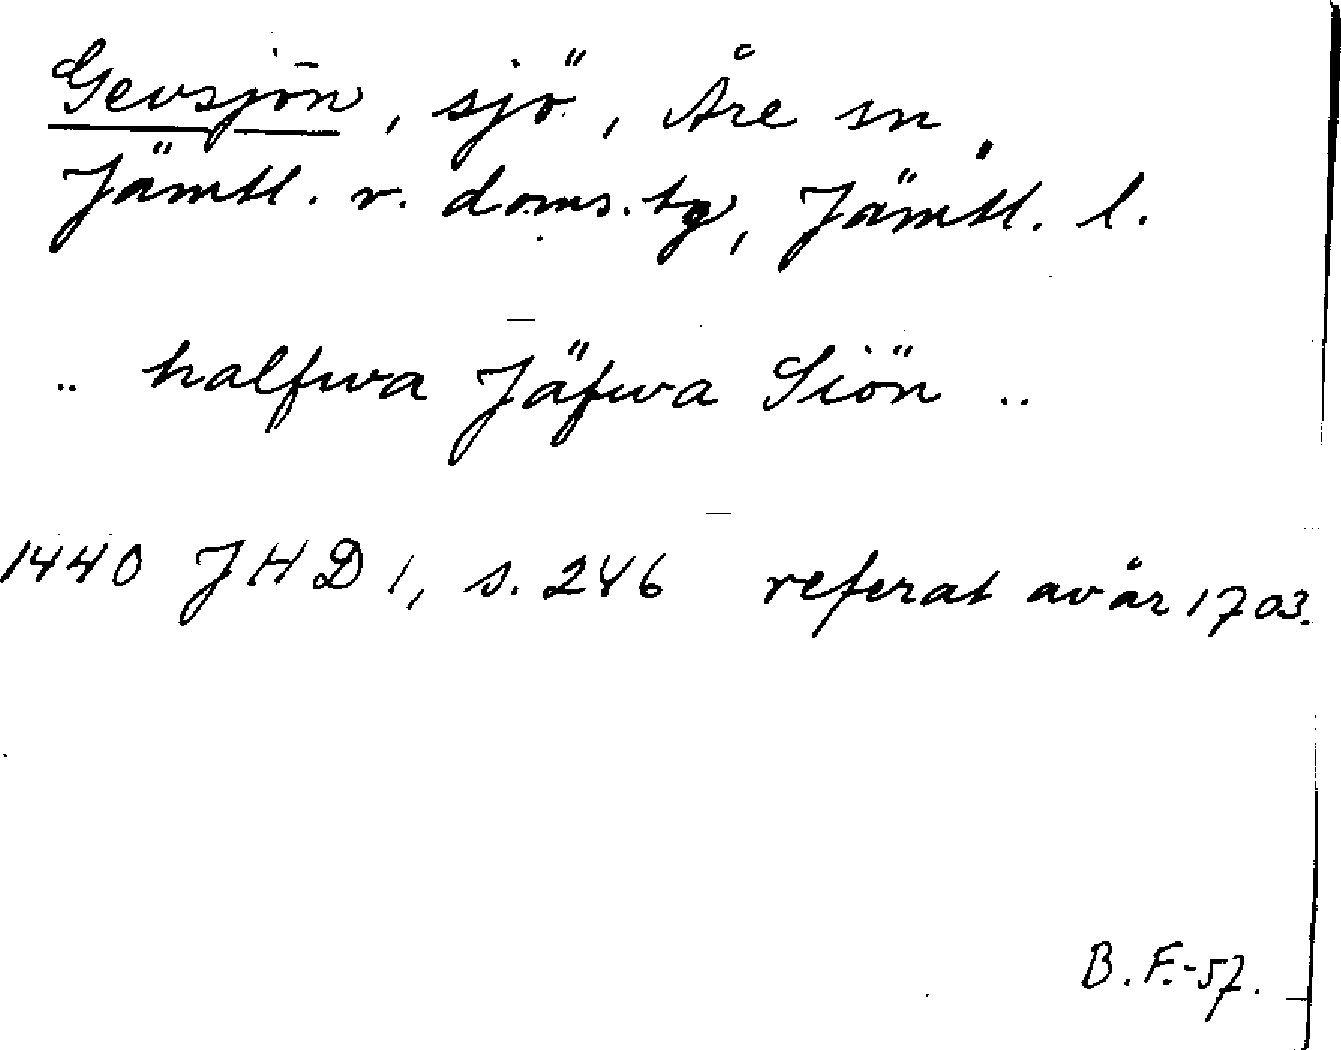 Gevsjön, sjö, Åre sn,
Jämtl. v. doms.tg, Jämtl. l.
.. halfwa Jäfwa Siön ..
1440 JHD 1, s. 246 referat av år 1703.
B. F.-57.